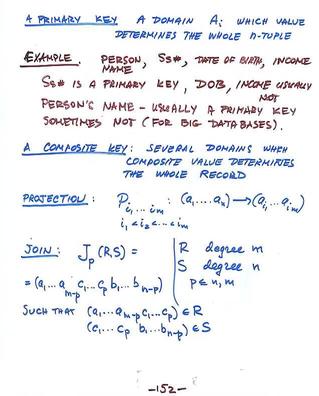 A PRIMARY KEY A DOMAIN Aᵢ WHICH VALUE
DETERMINES THE WHOLE n-TUPLE
EXAMPLE. PERSON NAME, SS#, DATE OF BIRTH, INCOME
SS# IS A PRIMARY KEY, DOB, INCOME USUALLY
NOT
PERSON'S NAME - USUALLY A PRIMARY KEY
SOMETIMES NOT (FOR BIG DATABASES).
A COMPOSITE KEY: SEVERAL DOMAINS WHEN
COMPOSITE VALUE DETERMINES
THE WHOLE RECORD
PROJECTION: P_{i₁...iₘ}: (a₁...aₙ) → (a_{i₁}...a_{iₘ})
i₁<i₂<...<iₘ
JOIN: Jₚ(R,S) = R degree m
S degree n
= (a₁...a_{m-p} c₁...cₚ b₁...b_{n-p}) p≤n,m
SUCH THAT (a₁...a_{m-p} c₁...cₚ) ∈ R
(c₁...cₚ b₁...b_{n-p}) ∈ S
-152-